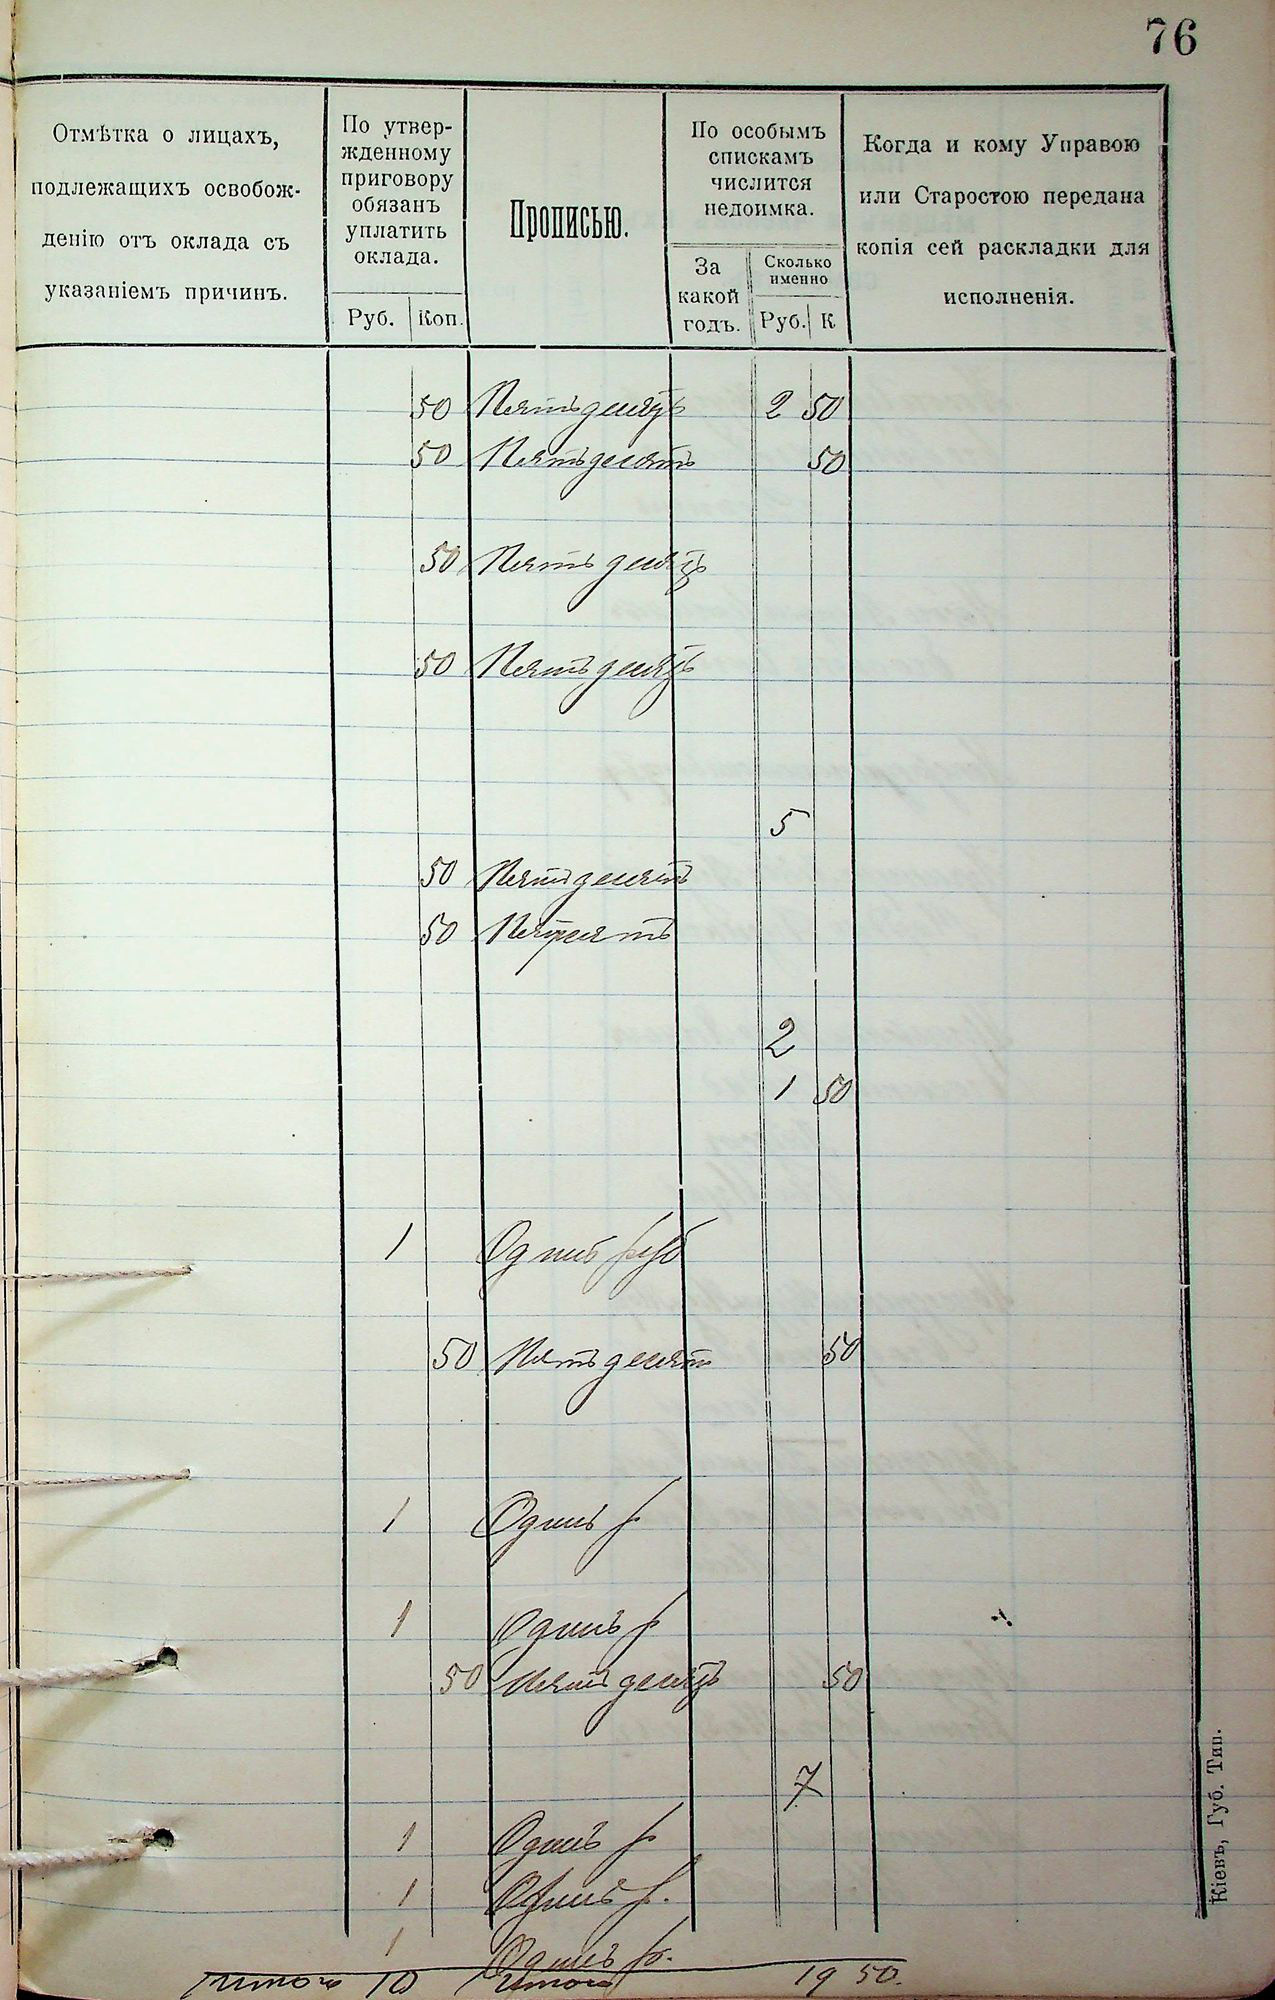 76
Отмѣтка о лицахъ,
подлежащихъ освобож-
денію отъ оклада съ
указаніемъ причинъ.
По утвер-
жденному
приговору
обязанъ
уплатить
оклада.
Руб. Коп.
Прописью.
По особымъ
спискамъ
числится
недоимка.
За
какой
годъ.
Сколько
именно
Руб. К
Когда и кому Управою
или Старостою передана
копія сей раскладки для
исполненія.
50 Пятьдесятъ 2 50
50 Пятьдесятъ 50
50 Пятьдесятъ
50 Пятьдесятъ
5
50 Пятьдесятъ
50 Пятдесятъ
2
1 50
1 Одинъ руб
50 Пятьдесятъ 50
1 Одинъ р
1 Одинъ р
50 Пятьдесятъ 50
7
1 Одинъ р
1 Одинъ р.
1 Одинъ р.
Итого 10 Итого 19 50.
Кіевъ, Губ. Тип.